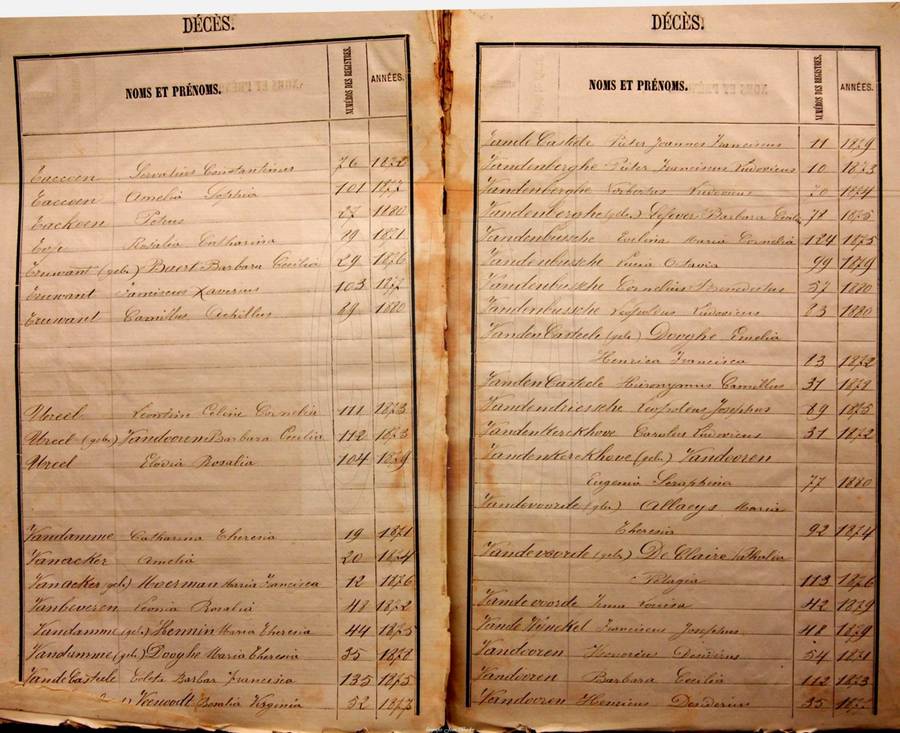 DÉCÈS.
NOMS ET PRÉNOMS. NUMÉROS DES REGISTRES. ANNÉES.
Taccoen Servatius Constantinus 76 1872
Taccoen Amelia Sophia 101 1877
Tackoen Petrus 27 1880
Rosalia Catharina 89 1871
Truwant (geb.) Baert Barbara Cecilia 29 1876
Truwant Franciscus Xaverius 103 1877
Truwant Camillus Achillus 89 1880
Ureel Leontein Celine Cornelia 111 1873
Ureel (geb.) Vandooren Barbara Cecilia 112 1873
Ureel Elodia Rosalia 104 1879
Vandamme Catharina Theresia 19 1871
Vanacker Amelia 20 1874
Vanacker (geb.) Moerman Maria Francisca 12 1876
Vanbeveren Leonia Rosalia 48 1872
Vandamme (geb.) Hennin Maria Theresia 44 1875
Vandamme (geb.) Dooghe Maria Theresia 35 1878
VandeCasteele Colete Barbar Francisca 135 1875
Rosalia Virginia 52 1877
DÉCÈS.
NOMS ET PRÉNOMS. NUMÉROS DES REGISTRES. ANNÉES.
Vande Casteele Pieter Joannes Franciscus 11 1879
Vandenberghe Pieter Franciscus Ludovicus 10 1873
Vandenberghe Norbertus Ludovicus 70 1874
Vandenberghe (geb.) Lefever Barbara 78 1875
Vandenbussche Evelina Maria Cornelia 124 1875
Vandenbussche Lucia Octavia 99 1879
Vandenbussche Cornelius Benedictus 57 1880
Vandenbussche Leopoldus Ludovicus 83 1880
VandenCasteele (geb.) Dooghe Emelia
Henrica Francisca 13 1872
VandenCasteele Hieronymus Camillus 31 1878
Vandendriessche Leopoldus Josephus 89 1875
Vandenkerckhove Carolus Ludovicus 31 1872
Vandenkerckhove (geb.) Vandooren
Eugenia Seraphina 77 1880
Vandevoorde (geb.) Allaeys Maria
Theresia 92 1874
Vandevoorde (geb.) De Claire Nathalia
Pelagia 113 1876
Vandevoorde Irma Louisa 42 1879
Vande Wynckel Franciscus Josephus 48 1879
Vandooren Honorius Desiderius 54 1871
Vandooren Barbara Cecilia 112 1873
Vandooren Henricus Desiderius 35